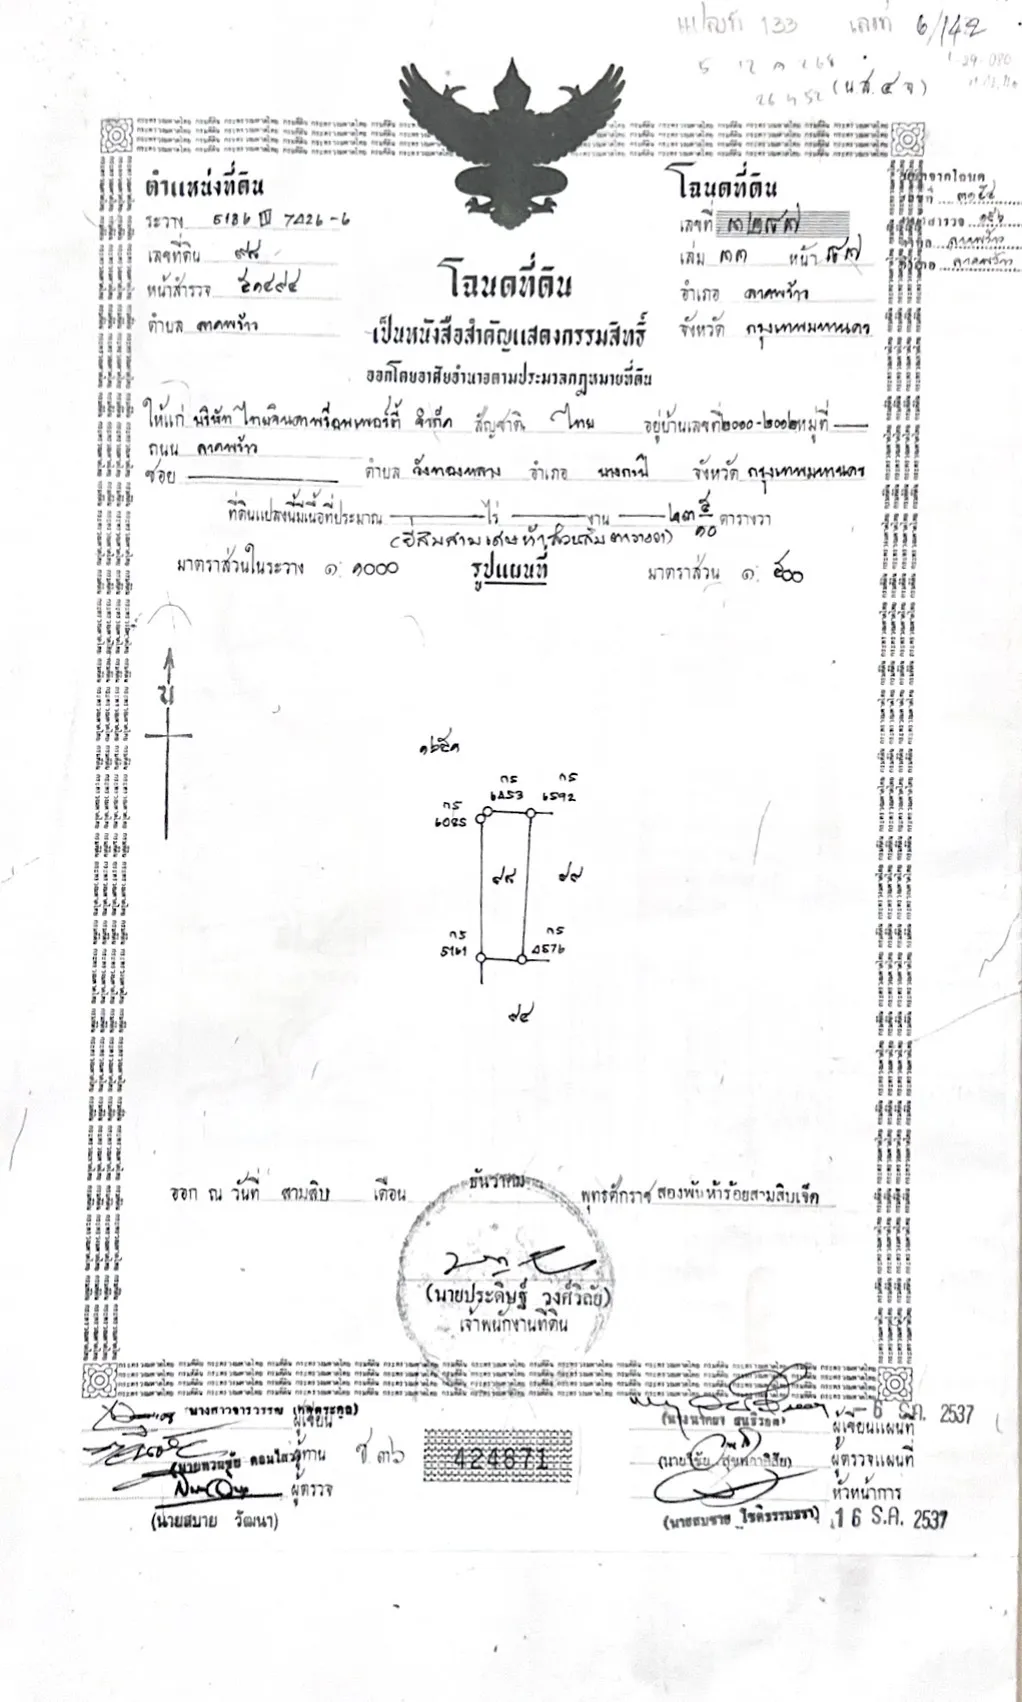 133 เลขที่ 6/142
(น.ส.๔ จ)
ตำแหน่งที่ดิน
ระวาง 5136 III 7426-6
เลขที่ดิน ๙๘
หน้าสำรวจ ๕๑๔๙๔
ตำบล ลาดพร้าว
โฉนดที่ดิน
เลขที่
เล่ม ๓๓ หน้า ๘๗
อำเภอ ลาดพร้าว
จังหวัด กรุงเทพมหานคร
โฉนดที่ดิน
เป็นหนังสือสำคัญแสดงกรรมสิทธิ์
ออกโดยอาศัยอำนาจตามประมวลกฎหมายที่ดิน
ให้แก่ บริษัท ไทยจินดาพร็อพเพอร์ตี้ จำกัด สัญชาติ ไทย อยู่บ้านเลขที่ ๒๐๐๐-๒๐๐๒ หมู่ที่
ถนน ลาดพร้าว
ซอย ตำบล วังทองหลาง อำเภอ บางกะปิ จังหวัด กรุงเทพมหานคร
ที่ดินแปลงนี้มีเนื้อที่ประมาณ ไร่ งาน ๒๓ ๕/๑๐ ตารางวา
(ยี่สิบสามเศษห้าส่วนสิบตารางวา)
มาตราส่วนในระวาง ๑: ๑๐๐๐ รูปแผนที่ มาตราส่วน ๑: ๕๐๐
น
๑๒๕๑
กร กร
6453 6592
กร
6025
๙๘ ๙๙
กร กร
5161 4576
๙๔
ออก ณ วันที่ สามสิบ เดือน ธันวาคม พุทธศักราช สองพันห้าร้อยสามสิบเจ็ด
(นายประดิษฐ์ วงศ์วิลัย)
เจ้าพนักงานที่ดิน
ผู้เขียน
ผู้ทาน
ผู้ตรวจ
(นายสบาย วัฒนา)
ช ๓๖
424871
ผู้เขียนแผนที่
- 6 ธ.ค. 2537
ผู้ตรวจแผนที่
หัวหน้าการ
16 ธ.ค. 2537